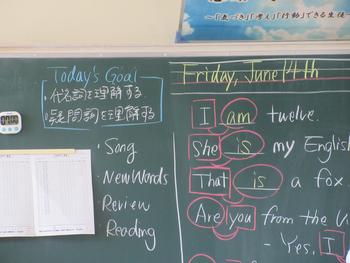 ～「気づき」「考え」「行動」できる生徒～
Today's Goal
・代名詞を理解する
・疑問詞を理解する
・Song
・New Words
・Review
・Reading
Friday, June 14th
I am twelve.
She is my English
That is a fox.
Are you from the U
- Yes, I